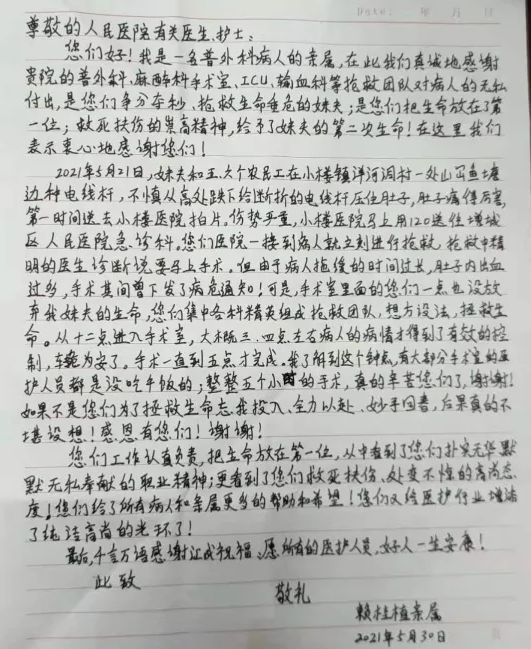 Date: 年 月 日
尊敬的人民医院有关医生、护士:
您们好!我是一名普外科病人的亲属,在此我们真诚地感谢
贵院的普外科、麻醉科手术室、ICU、输血科等抢救团队对病人的无私
付出,是您们争分夺秒、抢救生命垂危的妹夫;是您们把生命放在了第
一位;救死扶伤的崇高精神,给予了妹夫的第二次生命!在这里我们
表示衷心地感谢您们!
2021年5月21日,妹夫和五、六个农民工在小楼镇洋河洞村一处山边鱼塘
边种电线杆,不慎从高处跌下给断折的电线杆压住肚子,肚子痛得厉害,
第一时间送去小楼医院拍片。伤势严重,小楼医院马上用120送往增城
区人民医院急诊科。您们医院一接到病人就立刻进行抢救,抢救中精
明的医生诊断说要马上手术。但由于病人拖缓的时间过长,肚子内出血
过多,手术其间曾下发了病危通知!可是,手术室里面的您们一点也没放
弃我妹夫的生命,您们集中各科精英组成抢救团队,想方设法,拯救生
命。从十二点进入手术室,大概三、四点左右病人的病情才得到了有效的控
制,转危为安了。手术一直到五点才完成。我了解到这个钟点,有大部分手术室的医
护人员都是没吃午饭的;整整五个小时的手术,真的辛苦您们了,谢谢!
如果不是您们为了拯救生命忘我投入、全力以赴、妙手回春,后果真的不
堪设想!感恩有您们!谢谢!
您们工作认真负责,把生命放在第一位,从中看到了您们朴实无华、默
默无私奉献的职业精神;更看到了您们救死扶伤、处变不惊的高尚态
度!您们给了所有病人和亲属更多的帮助和希望!您们又给医护行业增添
了纯洁高尚的光环了!
最后,千言万语感谢让成祝福,愿所有的医护人员,好人一生安康!
此致
敬礼
赖桂植亲属
2021年5月30日